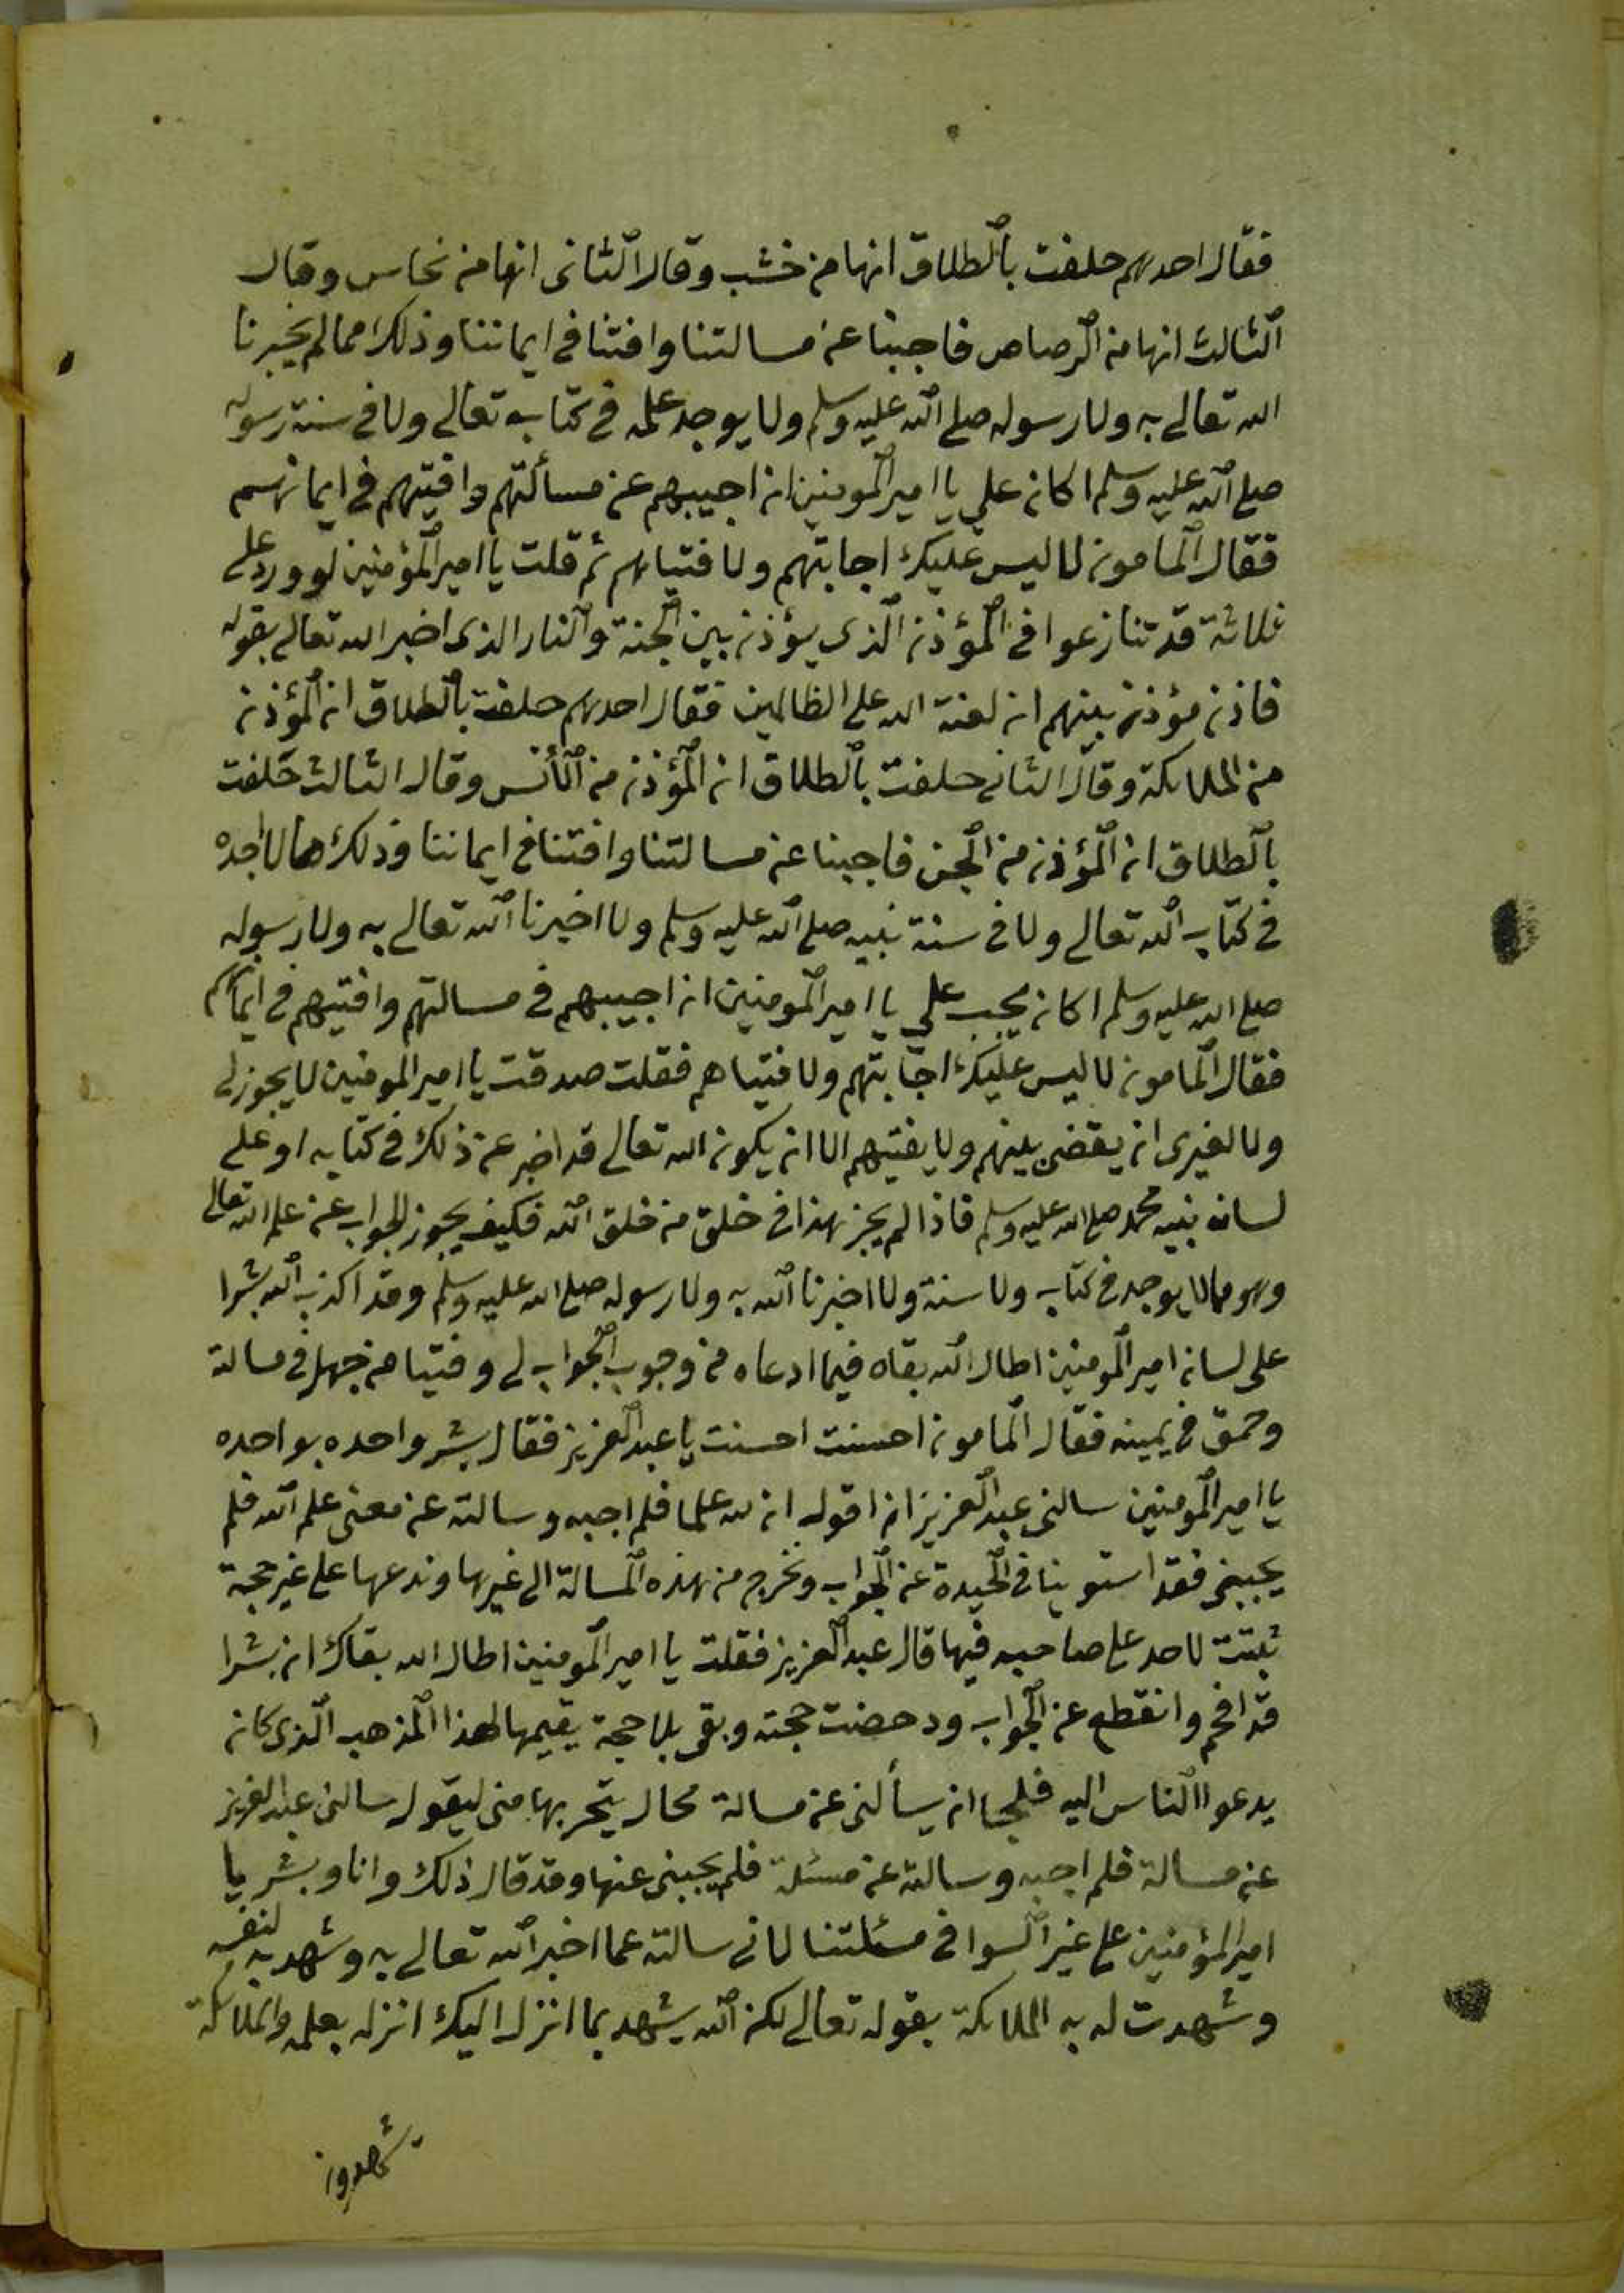 فقال احدهم حلفت بالطلاق انها من خشب وقال الثانى انها من نحاس وقال
الثالث انها من الرصاص فاجبنا عن مسالتنا وافتنا فى ايماننا وذلك مما لم يخبرنا
الله تعالى به ولا رسوله صلى الله عليه وسلم ولا يوجد علمه فى كتابه تعالى ولا فى سنة رسوله
صلى الله عليه وسلم اكان على يا امير المومنين ان اجيبهم عن مسألتهم وافتيهم فى ايمانهم
فقال المامون لا ليس عليك اجابتهم ولا فتياهم ثم قلت يا امير المؤمنين لو ورد على
ثلاثة قد تنازعوا فى المؤذن الذى يؤذن بين الجنة والنار الذى اخبر الله تعالى بقوله
فاذن مؤذن بينهم ان لعنة الله على الظالمين فقال احدهم حلفت بالطلاق ان المؤذن
من الملائكة وقال الثانى حلفت بالطلاق ان المؤذن من الأنس وقال الثالث حلفت
بالطلاق ان المؤذن من الجن فاجبنا عن مسالتنا وافتنا فى ايماننا وذلك مما لا اجده
فى كتاب الله تعالى ولا فى سنة نبيه صلى الله عليه وسلم ولا اخبرنا الله تعالى به ولا رسوله
صلى الله عليه وسلم اكان يجب على يا امير المومنين ان اجيبهم فى مسالتهم وافتيهم فى ايمانهم
فقال المامون لا ليس عليك اجابتهم ولا فتياهم فقلت صدقت يا امير المومنين لا يجوز لى
ولا لغيرى ان يقضى بينهم ولا يفتيهم الا ان يكون الله تعالى قد اخبر عن ذلك فى كتابه او على
لسان نبيه محمد صلى الله عليه وسلم فاذا لم يجز هذا فى خلق من خلق الله فكيف يجوز الجواب عن علم الله تعالى
وهو مما لا يوجد فى كتاب ولا سنة ولا اخبرنا الله به ولا رسوله صلى الله عليه وسلم وقد اكذب الله بشرا
على لسان امير المومنين اطال الله بقاه فيما ادعاه من وجوب الجواب لى وفتيا من جهل فى مسالة
وحمق فى يمينه فقال المامون احسنت احسنت يا عبد العزيز فقال بشر واحده بواحده
يا امير المومنين سالنى عبد العزيز ان اقول ان لله علما فلم اجبه وسالته عن معنى علم الله فلم
يجيبنى فقد استوينا فى الحيدة عن الجواب ونخرج من هذه المسالة الى غيرها وندعها على غير حجة
ثبتت لاحد على صاحبه فيها قال عبد العزيز فقلت يا امير المومنين اطال الله بقاك ان بشرا
قد افحم وانقطع عن الجواب ودحضت حجته وبقى بلا حجة يقيمها لهذا المذهب الذى كان
يدعوا الناس اليه فلجا ان يسألنى عن مسالة محال يتحر بها منى ليقول سالنى عبد العزيز
عن مسالة فلم اجبه وسالته عن مسئلة فلم يجيبنى عنها وقد قال ذلك وانا وبشر يا
امير المؤمنين على غير السوا فى مسئلتنا لانى سالته عما اخبر الله تعالى به وشهد به لنفسه
وشهدت له به الملائكة بقوله تعالى لكن الله يشهد بما انزل اليك انزله بعلمه والملائكة
يشهدون